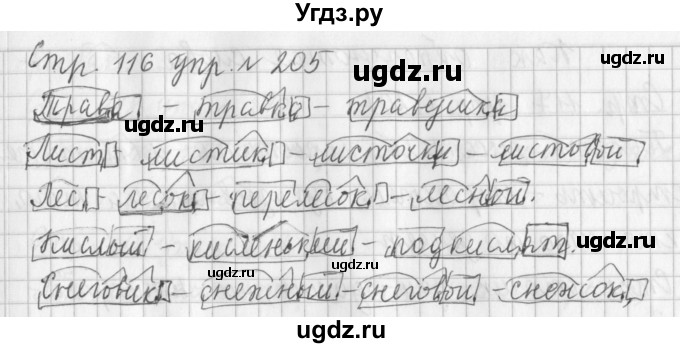 Угдз.ру
Стр. 116 упр. № 205
ugdz.ru
Трава - травка - травушка
ugdz.ru ugdz.ru
Лист - листик - листочки - листовой,
Лес - лесок - перелесок - лесной.
ugdz.ru ugdz.ru
Кислый - кисленький - подкислят.
ugdz.ru ugdz.ru
Снеговик - снежный - снеговой - снежок,
ugdz.ru